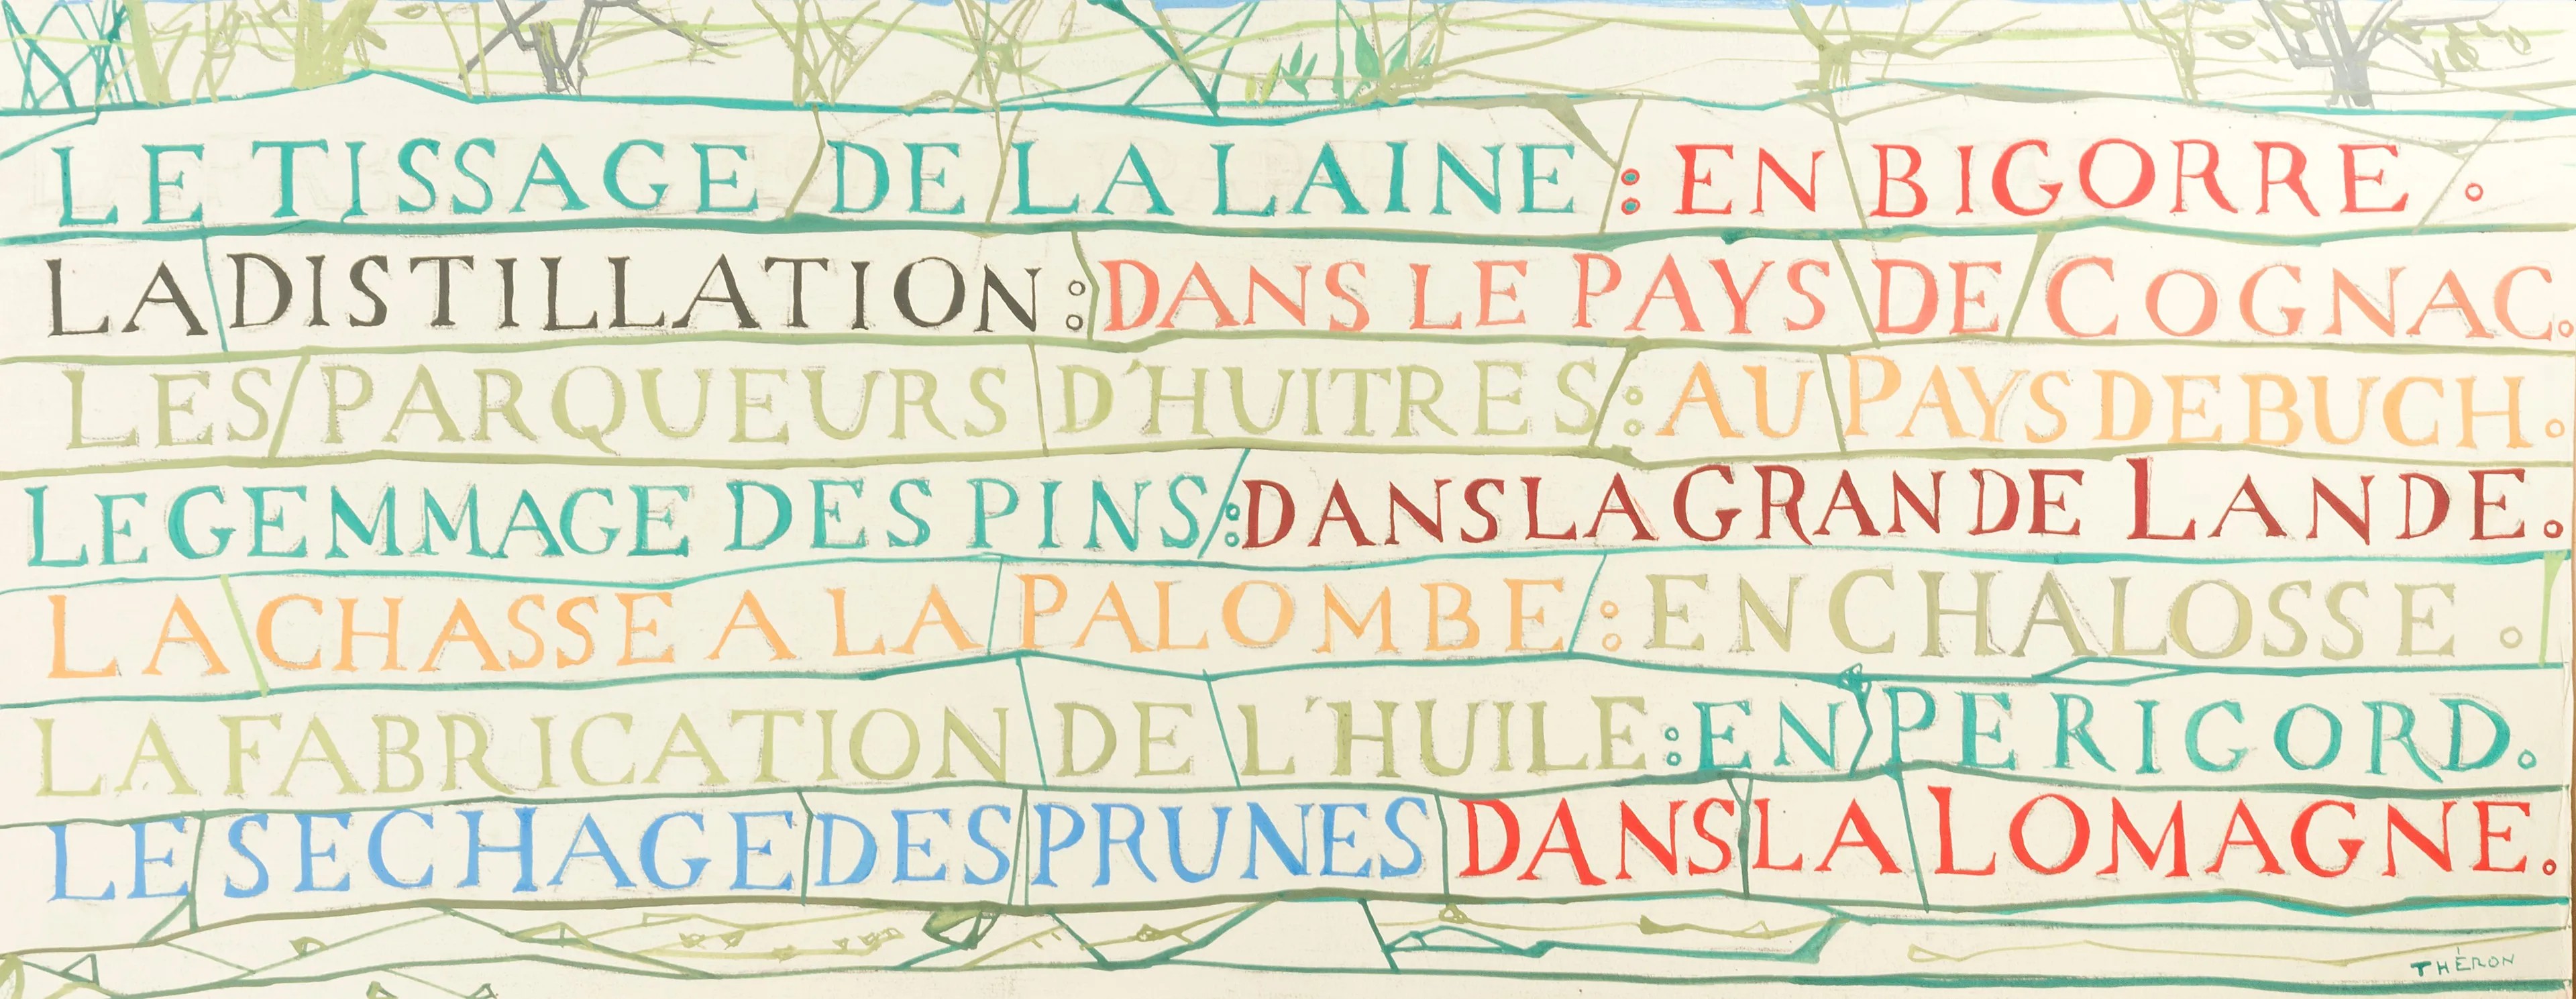 LE TISSAGE DE LA LAINE : EN BIGORRE .
LA DISTILLATION : DANS LE PAYS DE COGNAC.
LES PARQUEURS D'HUITRES : AU PAYS DE BUCH.
LE GEMMAGE DES PINS : DANS LA GRANDE LANDE.
LA CHASSE A LA PALOMBE : EN CHALOSSE .
LA FABRICATION DE L'HUILE : EN PERIGORD.
LE SECHAGE DES PRUNES DANS LA LOMAGNE.
THÉRON